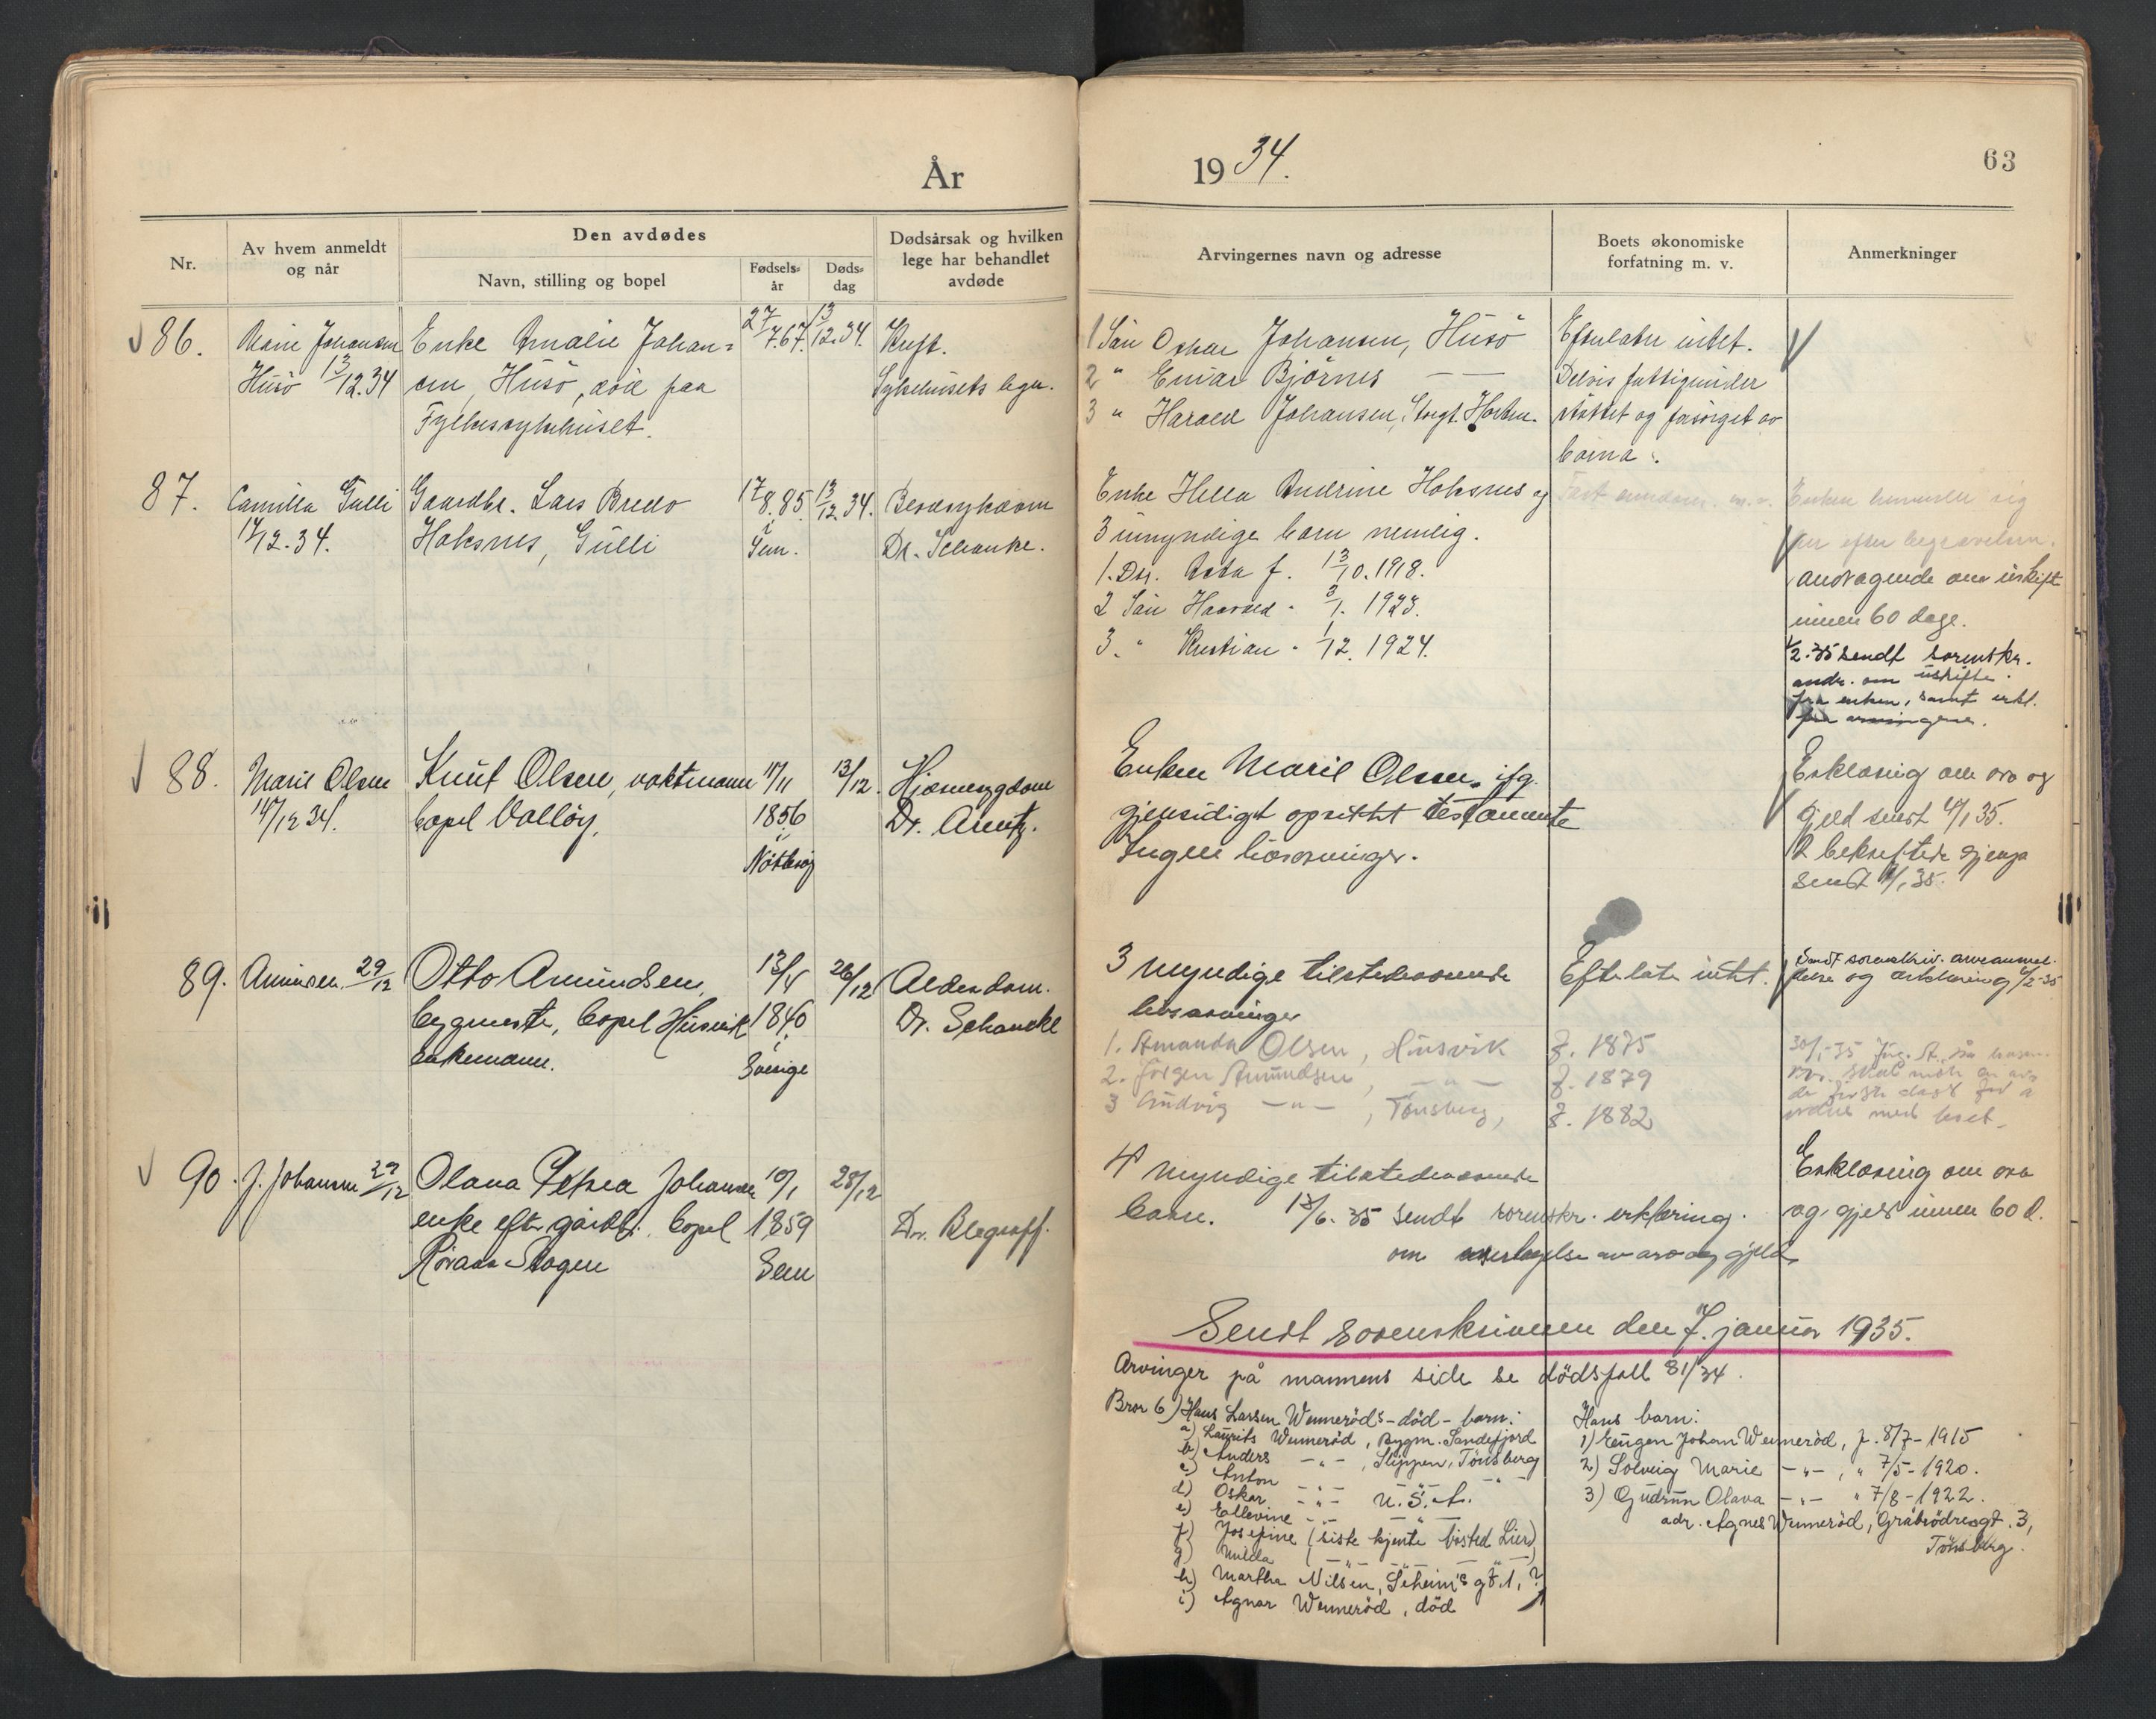 År
19 34.
63
Nr.
Av hvem anmeldt
og når
Den avdødes
Navn, stilling og bopel
Fødsels-
år
Døds-
dag
Dødsårsak og hvilken
lege har behandlet
avdøde
Arvingernes navn og adresse
Boets økonomiske
forfatning m. v.
Anmerkninger
86.
Marie Johansen
Husö 13/12.34
Enke Amalie Johan-
sen, Husö, död paa
Fylkessykehuset.
27/7.67.
13/12.34.
Kreft.
Sykehusets lege.
1 Sön Oskar Johansen, Husö
2 " Einar Björnes — —
3 " Harald Johansen, Storgt. Horten.
Efterlater intet.
Delvis fattigunder
støttet og forsörget av
barna.
87.
Camilla Gulli
14/12.34.
Gaardbr. Lars Bredo
Hoksnes, Gulli
17/8.85
i
Sem.
13/12.34.
Blodsykdom
Dr. Schanke.
Enke Helle Andrine Hoksnes og
3 umyndige barn nemlig.
1. Dtr. Asta f. 13/10.1918.
2 Sön Haavald - 3/1. 1923.
3. " Kristian - 1/12. 1924.
Enken henvender sig
her efter begravelsen.
andragende om uskift
innen 60 dage.
1/2-35 sendt sorenskr.
andr. om uskifte
fra enken, samt erkl.
fra arvingene.
88.
Marie Olsen
14/12 34.
Knut Olsen, vaktmann
bopel Vallöy.
11/11
1856
i
Nötteröy
13/12.
Hjernesygdom
Dr. Arentz.
Enken Marie Olsen ifg.
gjensidigt oprettet testamente
Ingen livsarvinger.
Erklæring om arv og
gjeld sendt 4/1 35.
2 bekreftede gjenpa
sendt 4/1 35.
89.
Amundsen 29/12
Otto Amundsen,
bygmester, bopel Husvik
enkemann.
13/4
1840
i
Sverige
26/12
Alderdom.
Dr. Schancke
3 myndige tilstedeværende
livsarvinger
1. Amanda Olsen, Husvik f. 1875
2. Jörgen Amundsen, — " — f. 1879
3 Ludvig — " —, Tönsberg, f. 1882
Efterlate intet.
Sendt sorenskriv. arveanmel-
delse og erklæring 6/2-35
90.
J. Johansen 29/12
Olava Petrea Johansen
enke efter gårdbr. bopel
Råvann Skogen
10/1
1859
Sem
28/12
Dr. Blegraff.
4 myndige tilstedeværende
barn. 13/6. 35 sendt sorenskr. erklæring
om overtagelse av arv og gjeld
Erklæring om arv
og gjeld innen 60 d.
Sendt sorenskriveren den 7. januar 1935.
Arvinger på mannens side se dödsfall 81/34.
Bror 6) Hans Larsen Wemeröd - död - barn:
a) Laurits Wemeröd, Bygm. Sandefjord
b) Anders — " —, Slippen, Tönsberg
c) Anton — " — — " —
d) Oskar — " — U.S.A.
e) Ellevine — " — — " —
f) Josefine (siste kjente bosted Lier)
g) Milla ( — " — — " — )
h) Martha Nilsen, Seheim's gt. 1, ?
i) Agnar Wemeröd, död
Hans barn:
1) Eugen Johan Wemeröd, f. 8/7-1915
2) Solveig Marie — " —, " 7/5-1920.
3) Gudrun Olava — " — " 7/8-1922.
adr. Agnes Wemeröd, Gråbrödregt. 3,
Tönsberg.